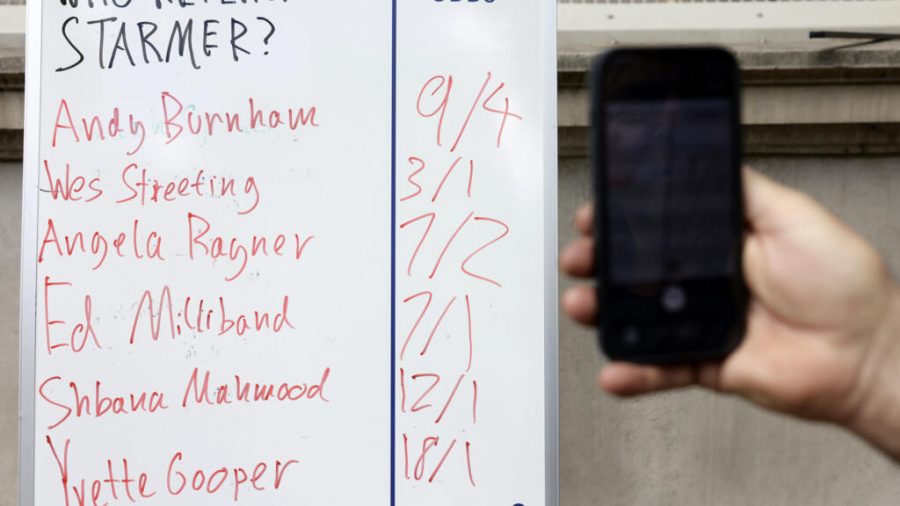 WHO
ODDS
STARMER?
Andy Burnham 9/4
Wes Streeting 3/1
Angela Rayner 7/2
Ed Milliband 7/1
Shbana Mahmood 12/1
Yvette Cooper 18/1